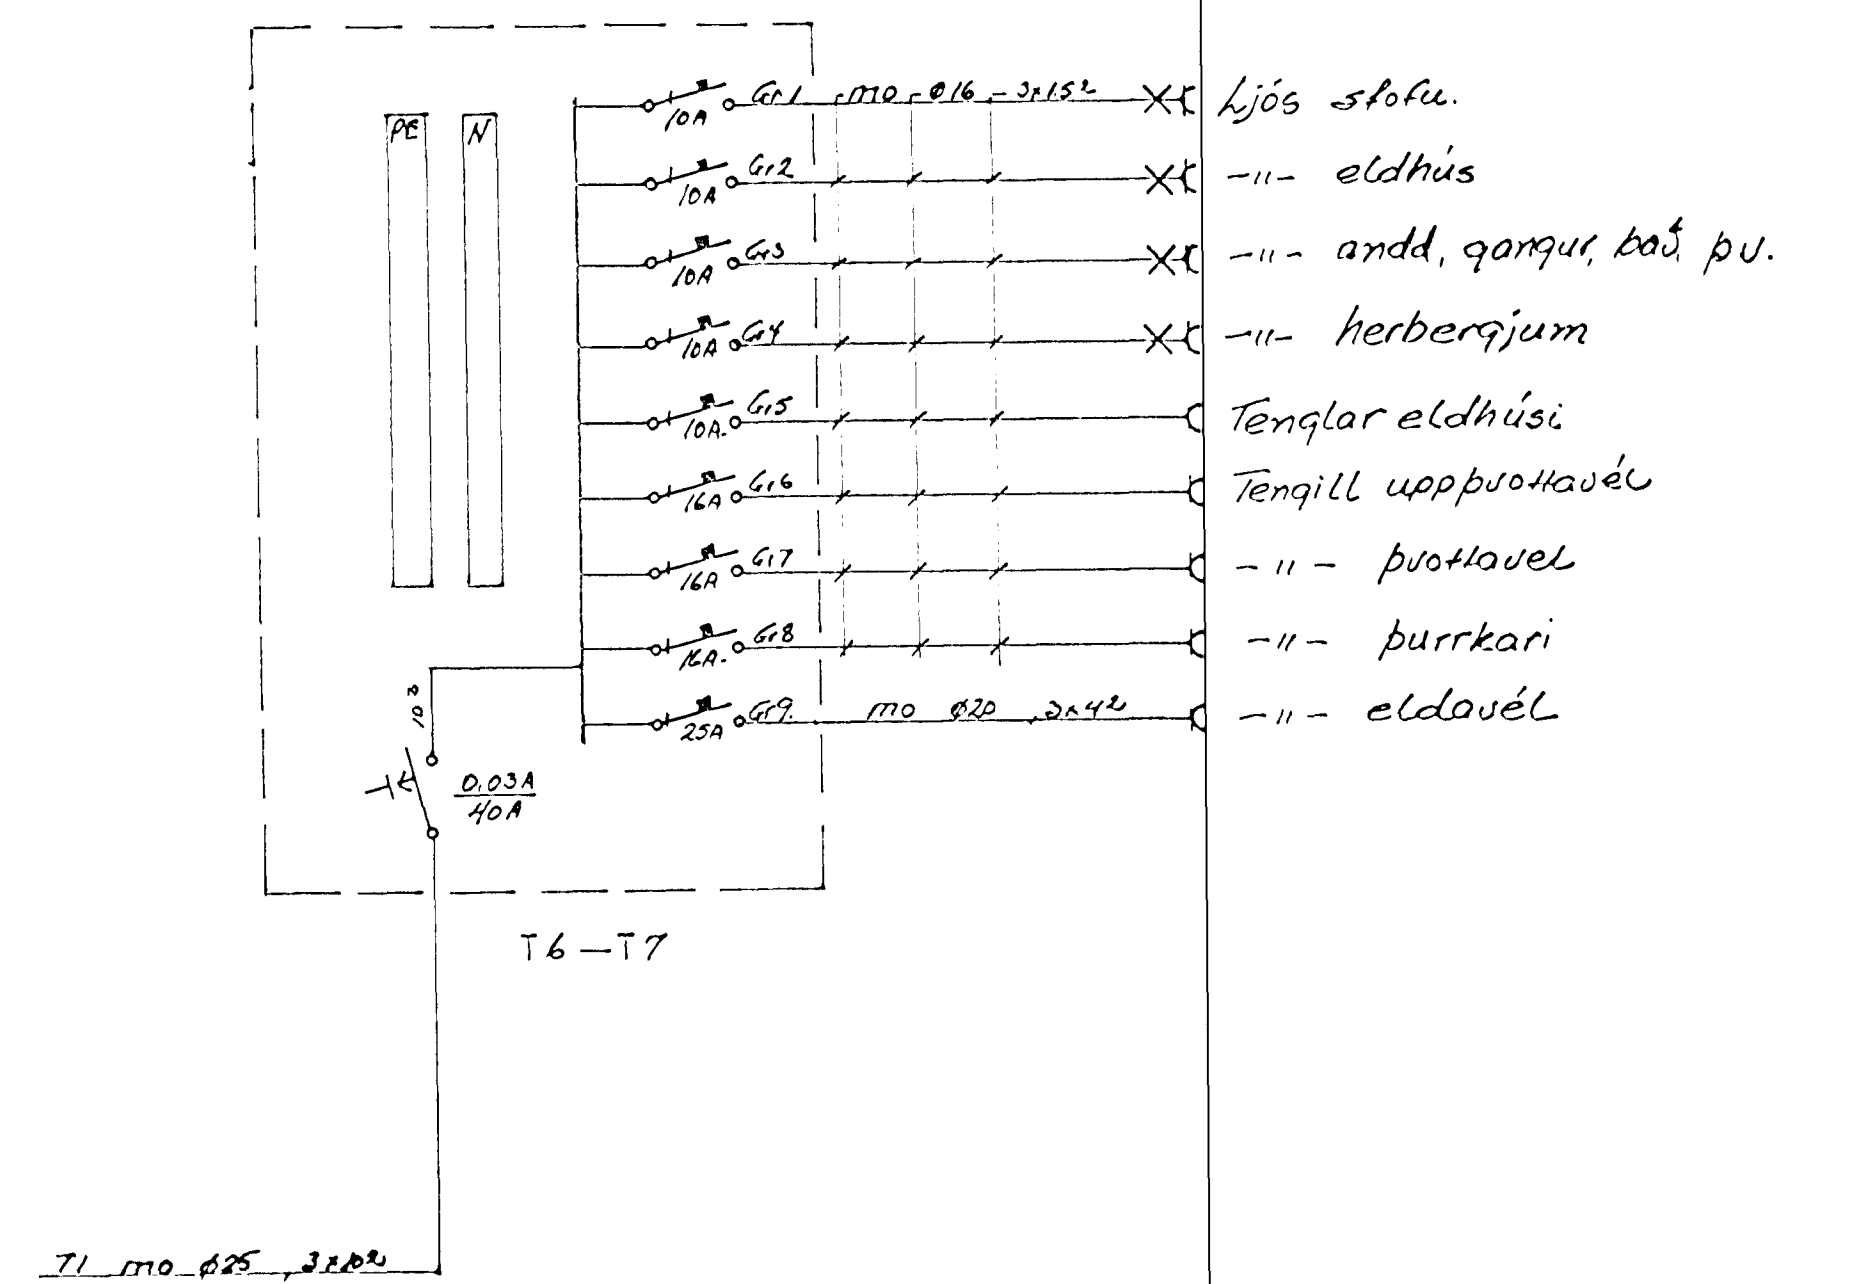 PE N
Gr1 mo ø16 3x1.5² Ljós stofu.
10A
Gr2 -"- eldhús
10A
Gr3 -"- andd, gangur, bað, þv.
10A
Gr4 -"- herbergjum
10A
Gr5 Tenglar eldhúsi
10A.
Gr6 Tengill uppþvottavél
16A
Gr7 -"- þvottavel
16A
Gr8 -"- þurrkari
16A.
Gr9. mo ø20, 3x4² -"- eldavél
25A
0,03A
40A
T6-T7
T1 mo ø25, 3x10²